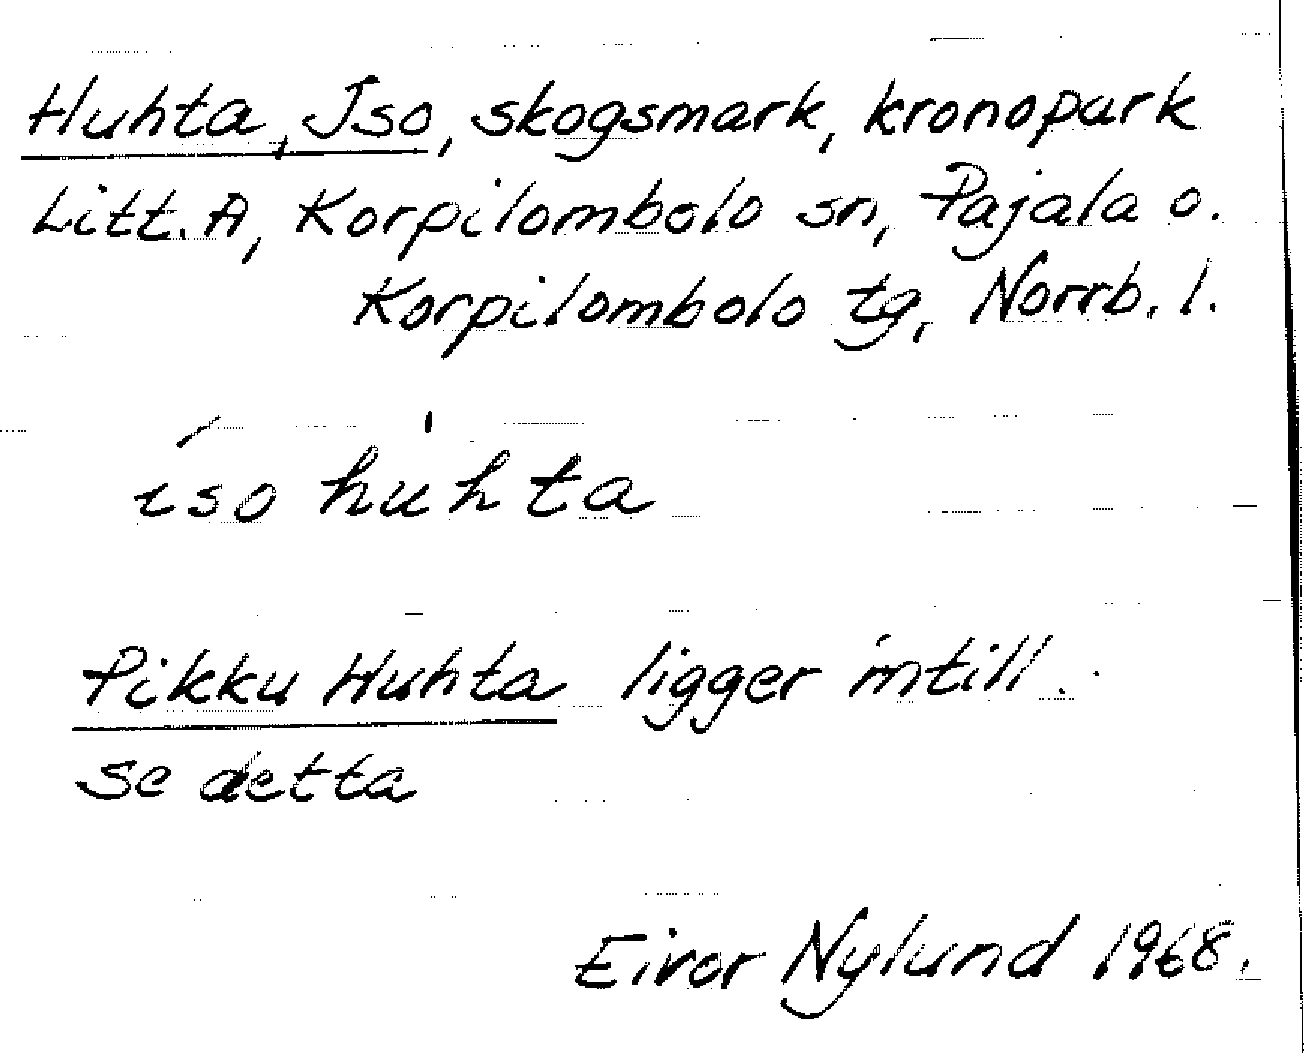 Huhta, Iso, skogsmark, kronopark
Litt. A, Korpilombolo sn, Pajala o.
Korpilombolo tg, Norrb. l.
íso hu̍hta
Pikku Huhta ligger intill.
se detta
Eivor Nylund 1968.